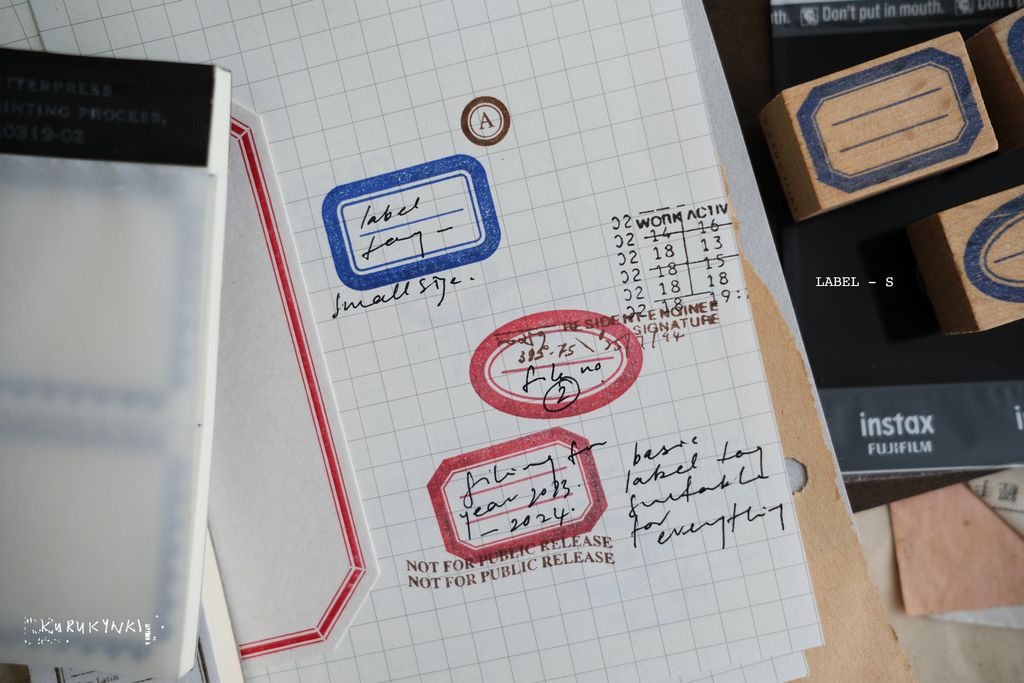 Don't put in mouth.
Don't put
ETTERPRESS
INTING PROCESS,
20319-02
A
label
tag -
Small size.
WORK ACTIV
14 16
18 13
18 15
18 18
18 19:
RESIDENT ENGINEE
SIGNATURE
LABEL - S
file no
2
instax
FUJIFILM
filing for
year 2023.
- 2024.
basic
label tag
suitable
for
everything
NOT FOR PUBLIC RELEASE
NOT FOR PUBLIC RELEASE
KURUKYNKI